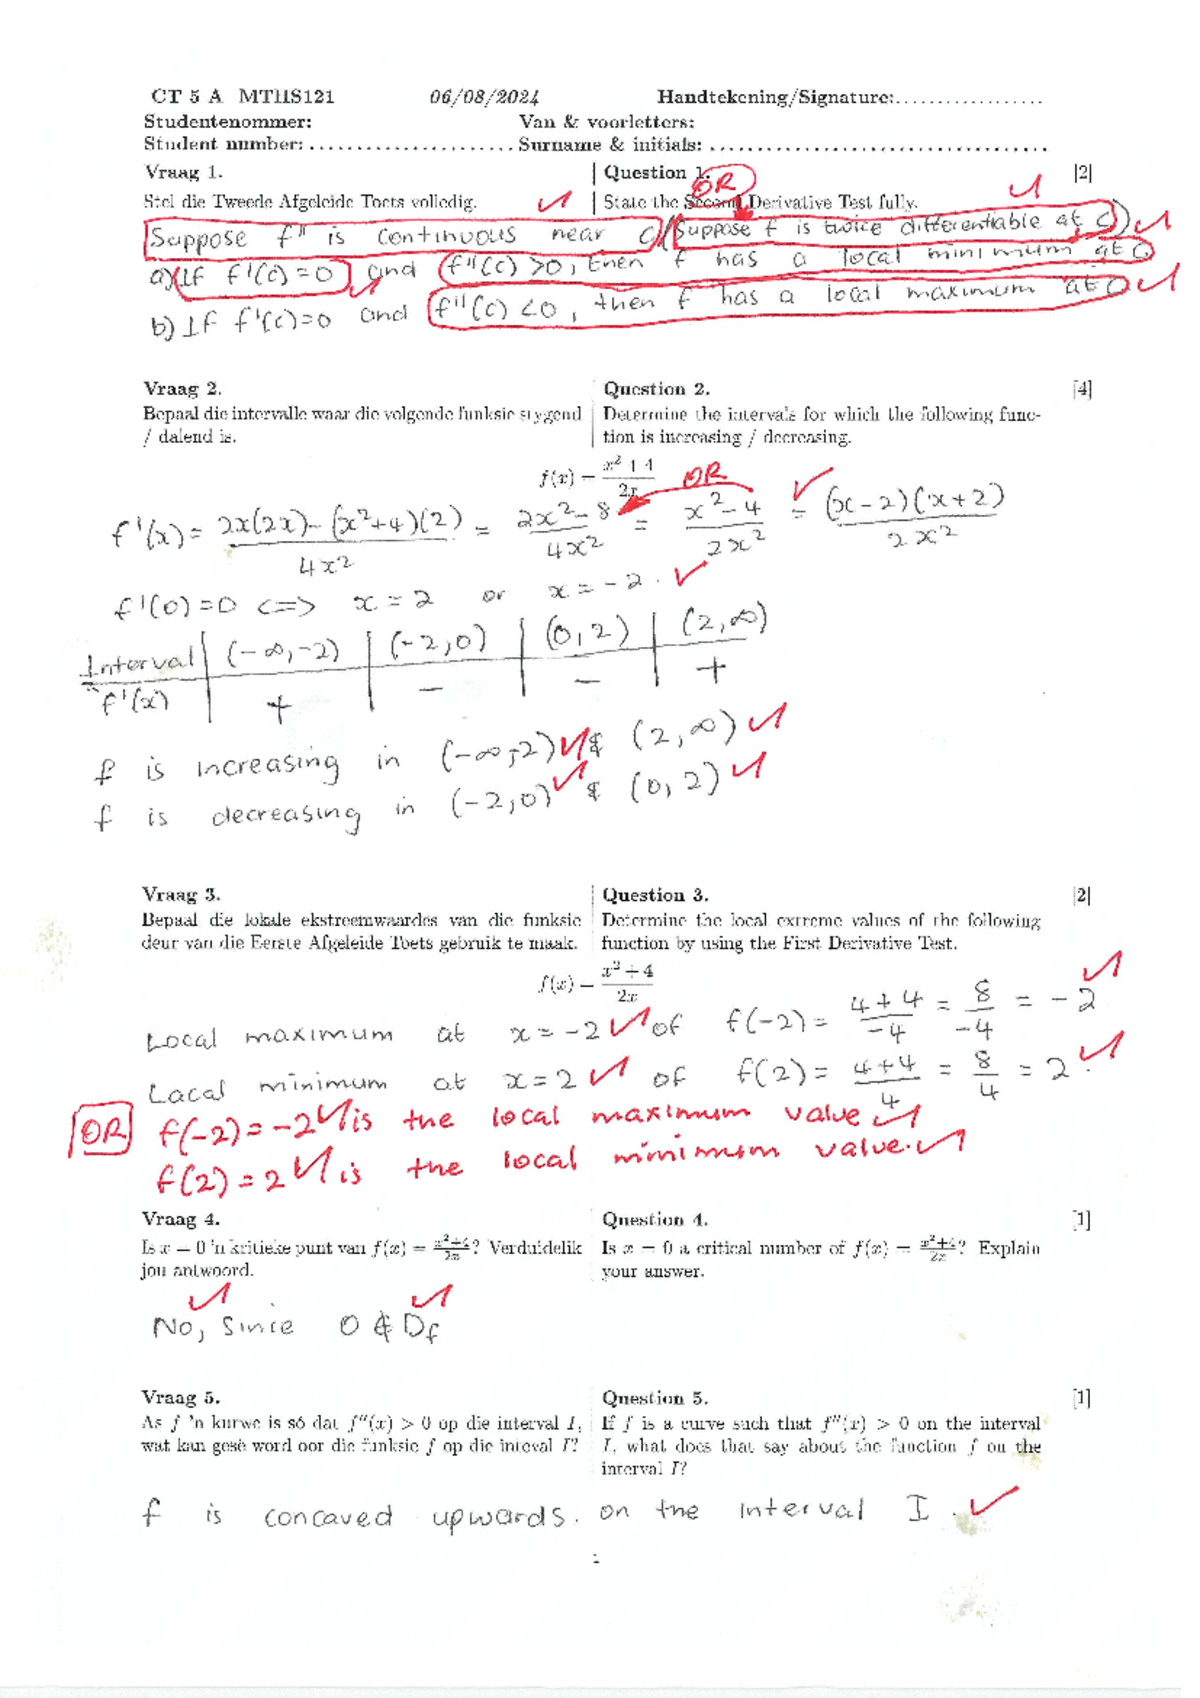 CT 5 A MTHS121 06/08/2024 Handtekening/Signature:..................
Studentenommer: Van & voorletters:
Student number: ...................... Surname & initials: ....................................
Vraag 1. Question 1. [2]
OR
Stel die Tweede Afgeleide Toets volledig. State the Second Derivative Test fully.
Suppose f'' is continuous near c / (Suppose f is twice differentiable at c)
a) If f'(c) = 0 and f''(c) > 0, then f has a local minimum at c
b) If f'(c) = 0 and f''(c) < 0, then f has a local maximum at c
Vraag 2. Question 2. [4]
Bepaal die intervalle waar die volgende funksie stygend / dalend is.
Determine the intervals for which the following function is increasing / decreasing.
f(x) = x²+4 / 2x
OR
f'(x) = 2x(2x) - (x²+4)(2) / 4x² = 2x² - 8 / 4x² = x² - 4 / 2x² = (x-2)(x+2) / 2x²
f'(0) = 0 <=> x = 2 or x = -2.
Interval | (-∞,-2) | (-2,0) | (0,2) | (2,∞)
f'(x) | + | - | - | +
f is increasing in (-∞,-2) & (2,∞)
f is decreasing in (-2,0) & (0,2)
Vraag 3. Question 3. [2]
Bepaal die lokale ekstreemwaardes van die funksie deur van die Eerste Afgeleide Toets gebruik te maak.
Determine the local extreme values of the following function by using the First Derivative Test.
f(x) = x²+4 / 2x
Local maximum at x = -2 of f(-2) = 4+4 / -4 = 8 / -4 = -2
Local minimum at x = 2 of f(2) = 4+4 / 4 = 8 / 4 = 2.
OR f(-2) = -2 is the local maximum value.
f(2) = 2 is the local minimum value.
Vraag 4. Question 4. [1]
Is x = 0 'n kritieke punt van f(x) = x²+4 / 2x? Verduidelik jou antwoord.
Is x = 0 a critical number of f(x) = x²+4 / 2x? Explain your answer.
No, since 0 ∉ Df
Vraag 5. Question 5. [1]
As f 'n kurwe is só dat f''(x) > 0 op die interval I, wat kan gesê word oor die funksie f op die inteval I?
If f is a curve such that f''(x) > 0 on the interval I, what does that say about the function f on the interval I?
f is concaved upwards. on the interval I.
1